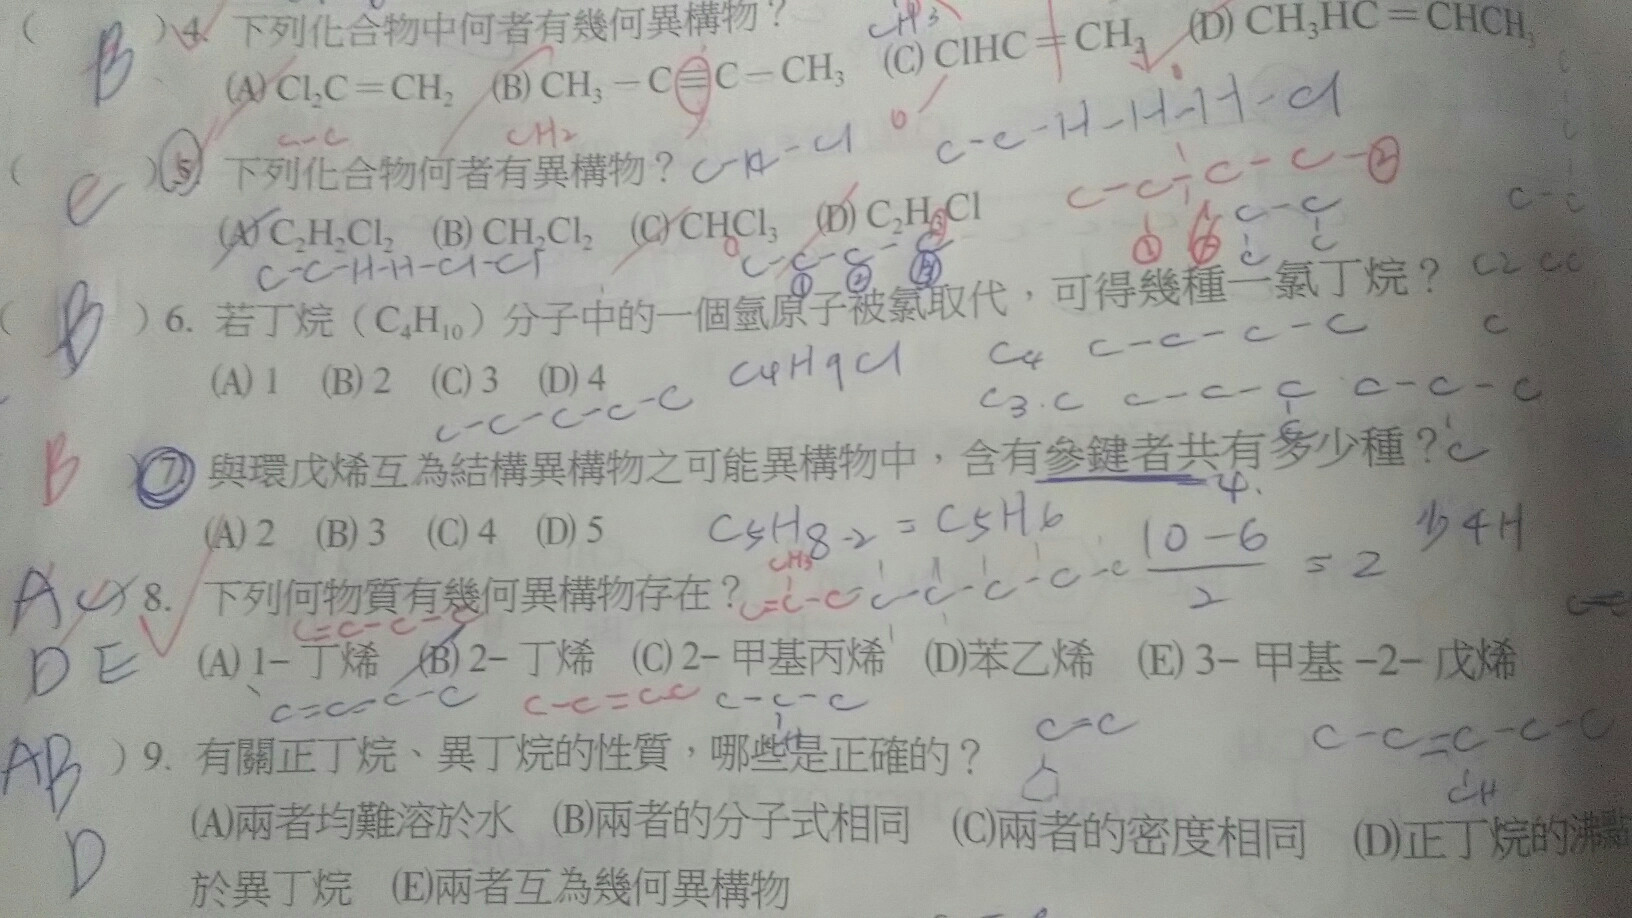 ( B ) 4. 下列化合物中何者有幾何異構物？
(A) Cl₂C＝CH₂ (B) CH₃－C≡C－CH₃ (C) ClHC＝CH₂ (D) CH₃HC＝CHCH₃
CH₃
C-C CH₂
( C ) 5. 下列化合物何者有異構物？
C-C-H-H-H-Cl
(A) C₂H₂Cl₂ (B) CH₂Cl₂ (C) CHCl₃ (D) C₂H₅Cl
C-C-H-H-Cl-Cl
C-C-C-C ① ②
C-C-C-C-②
① ②
C-C
C C
( B ) 6. 若丁烷（C₄H₁₀）分子中的一個氫原子被氯取代，可得幾種一氯丁烷？
(A) 1 (B) 2 (C) 3 (D) 4
C4H9Cl
C-C-C-C-C
C4 C-C-C-C
C3.C C-C-C C-C-C
C C
B ⑦ 與環戊烯互為結構異構物之可能異構物中，含有參鍵者共有多少種？
4.
(A) 2 (B) 3 (C) 4 (D) 5
C5H8-2 = C5H6
10-6
2
= 2
少4H
A C 8. 下列何物質有幾何異構物存在？
CH3
C=C-C
C=C-C-C
D E (A) 1－丁烯 (B) 2－丁烯 (C) 2－甲基丙烯 (D)苯乙烯 (E) 3－甲基－2－戊烯
C=C-C-C C-C=CC C-C-C
C=C
C-C=C-C-C
CH
AB ) 9. 有關正丁烷、異丁烷的性質，哪些是正確的？
D
(A)兩者均難溶於水 (B)兩者的分子式相同 (C)兩者的密度相同 (D)正丁烷的沸點
於異丁烷 (E)兩者互為幾何異構物